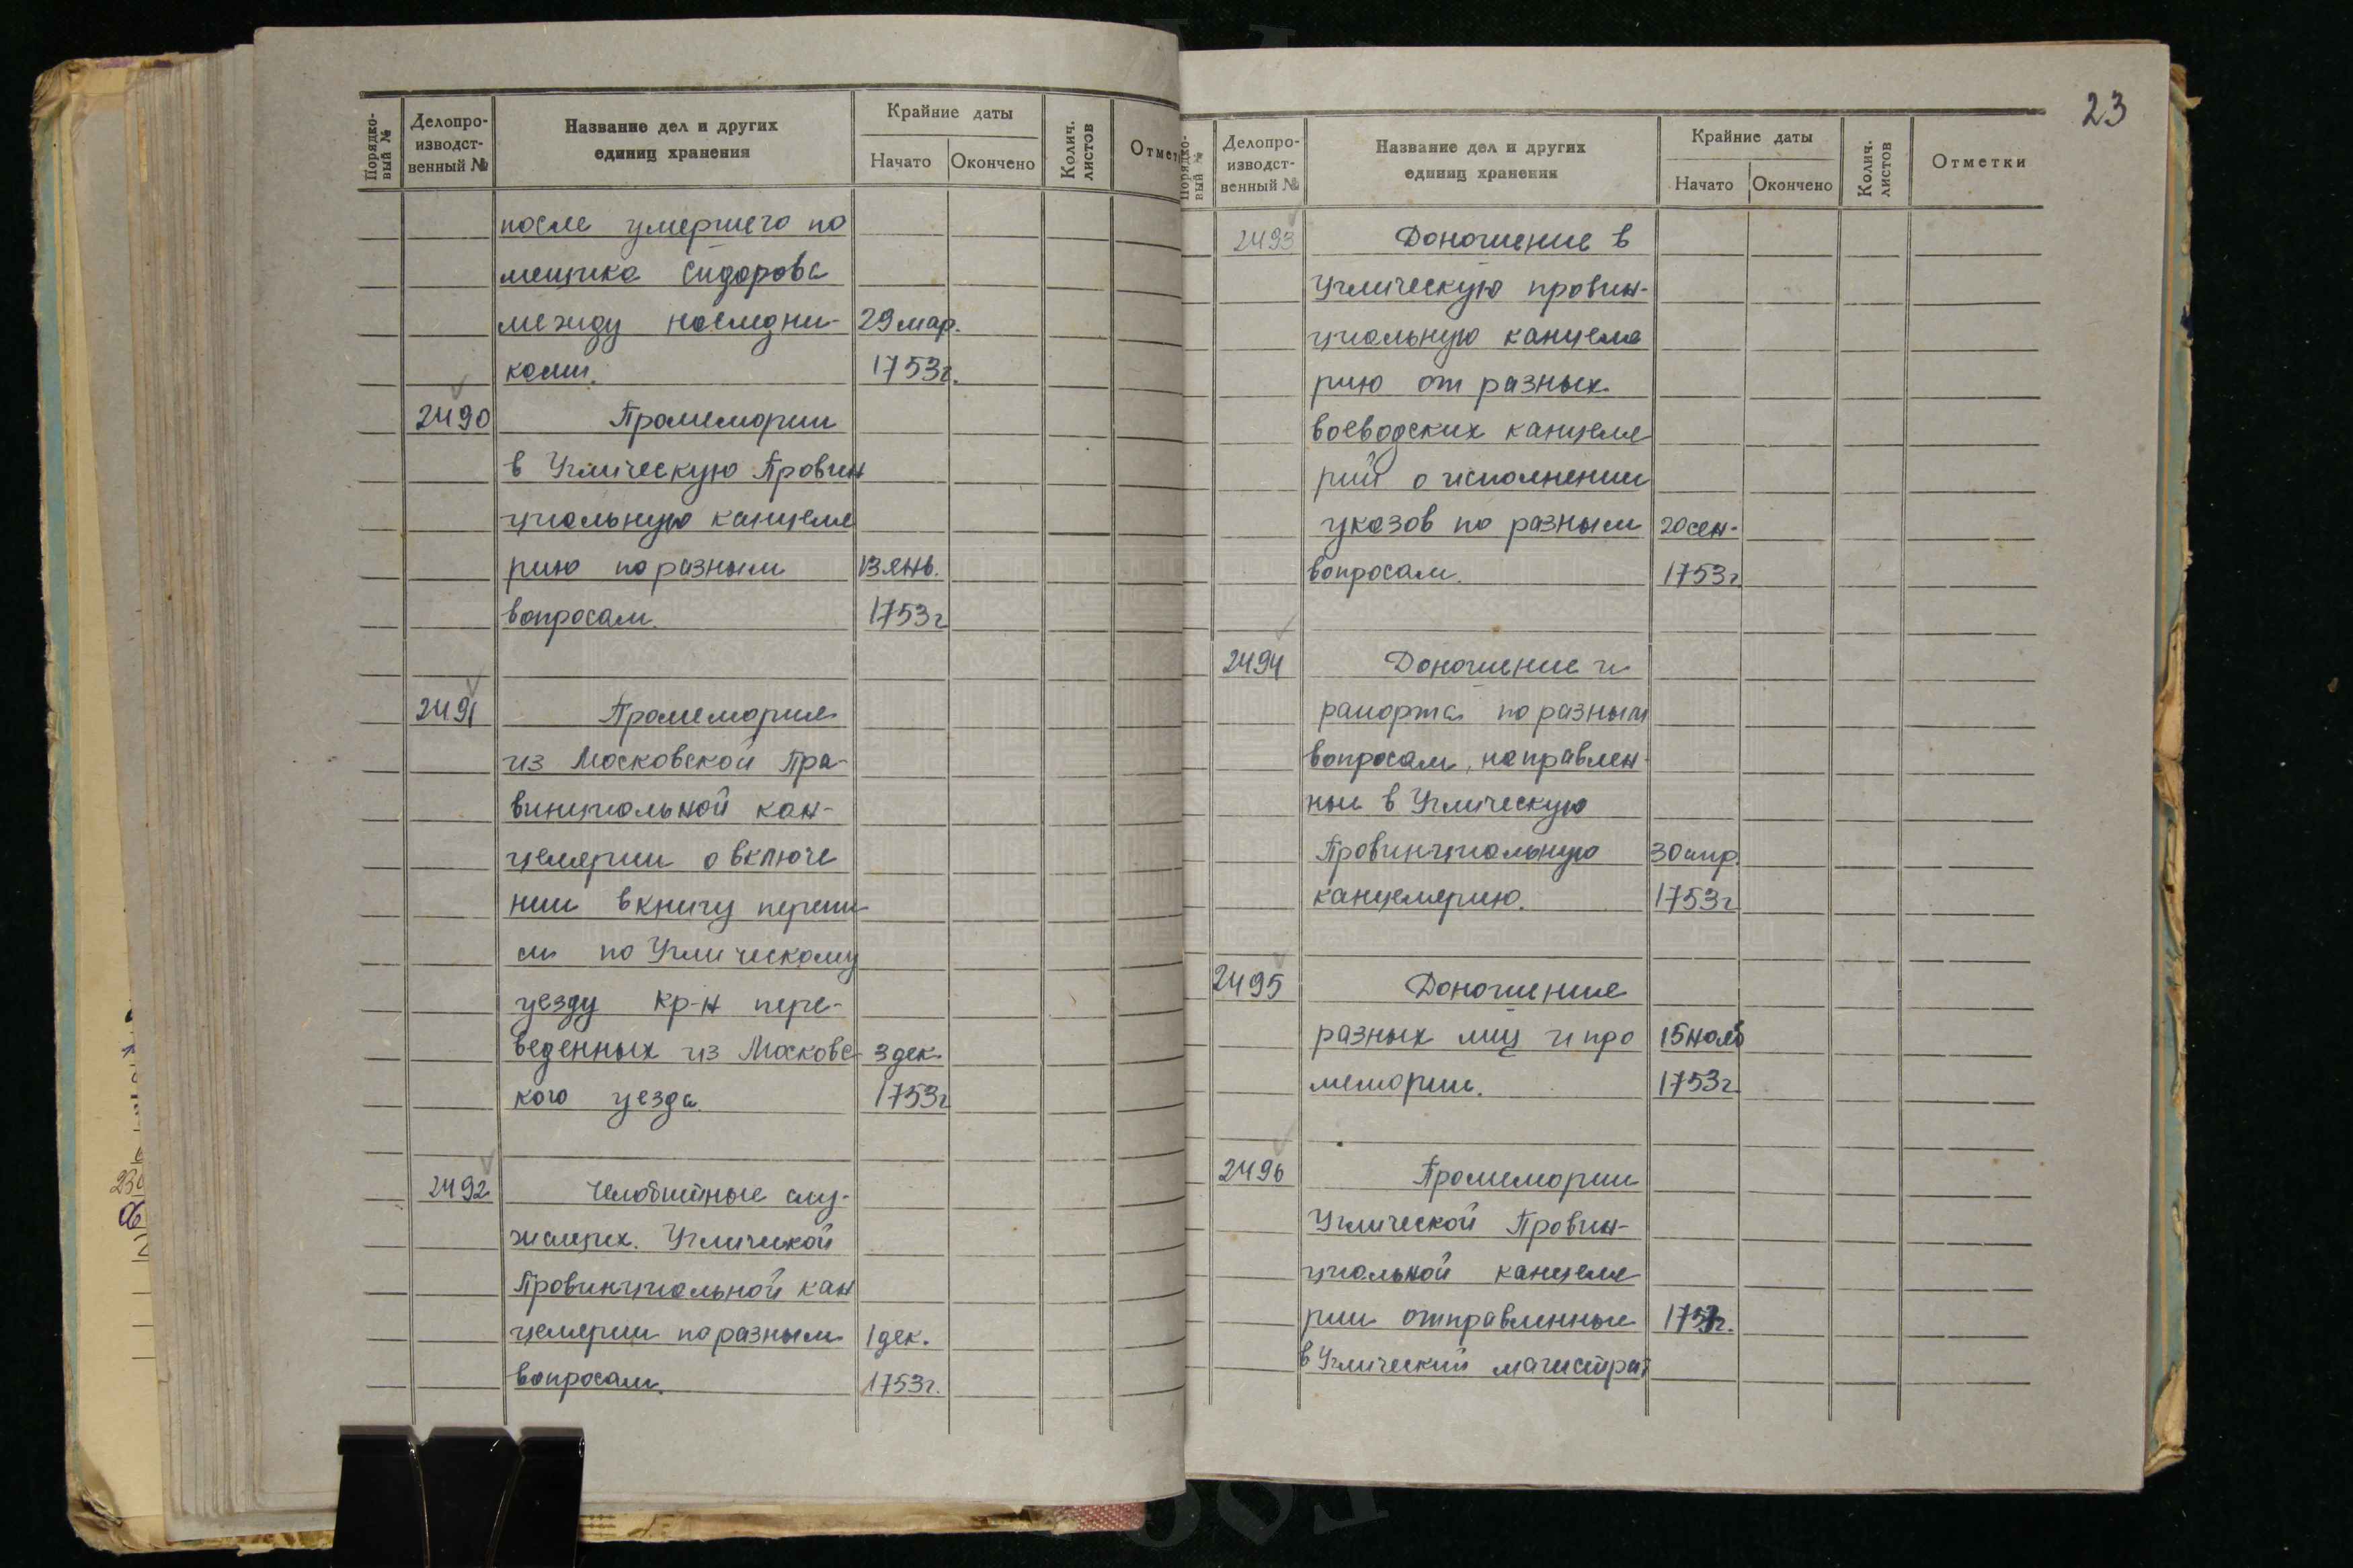 Порядко-
вый №
Делопро-
изводст-
венный №
Название дел и других
единиц хранения
Крайние даты
Начато
Окончено
Колич.
листов
Отмет
после умершего по
мещика Сидорова
между наследни- 29 мар.
ками. 1753г.
2490 Промемории
в Углическую Провин
циальную канцеля
рию по разным 13 янв.
вопросам. 1753г
2491 Промемория
из Московской Про-
винциальной кан-
целярии о включе
нии в книгу перепи
си по Углическому
уезду кр-н пере-
веденных из Московс 3 дек.
кого уезда. 1753г
2492 Челобитные слу-
жащих. Угличской
Провинциальной кан
целярии по разным 1 дек.
вопросам. 1753г.
23
Порядко-
вый №
Делопро-
изводст-
венный №
Название дел и других
единиц хранения
Крайние даты
Начато
Окончено
Колич.
листов
Отметки
2493 Доношение в
Углическую провин-
циальную канцеля
рию от разных
воеводских канцеля
рий о исполнении
указов по разным 20 сен-
вопросам. 1753г
2494 Доношение и
рапорта по разным
вопросам, направлен-
ные в Углическую
Провинциальную 30 апр.
канцелярию. 1753г
2495 Доношение
разных лиц и про 15 нояб
мемории. 1753г
2496 Промемории
Углической Провин-
циальной канцеля
рии отправленные
в Углический магистрат